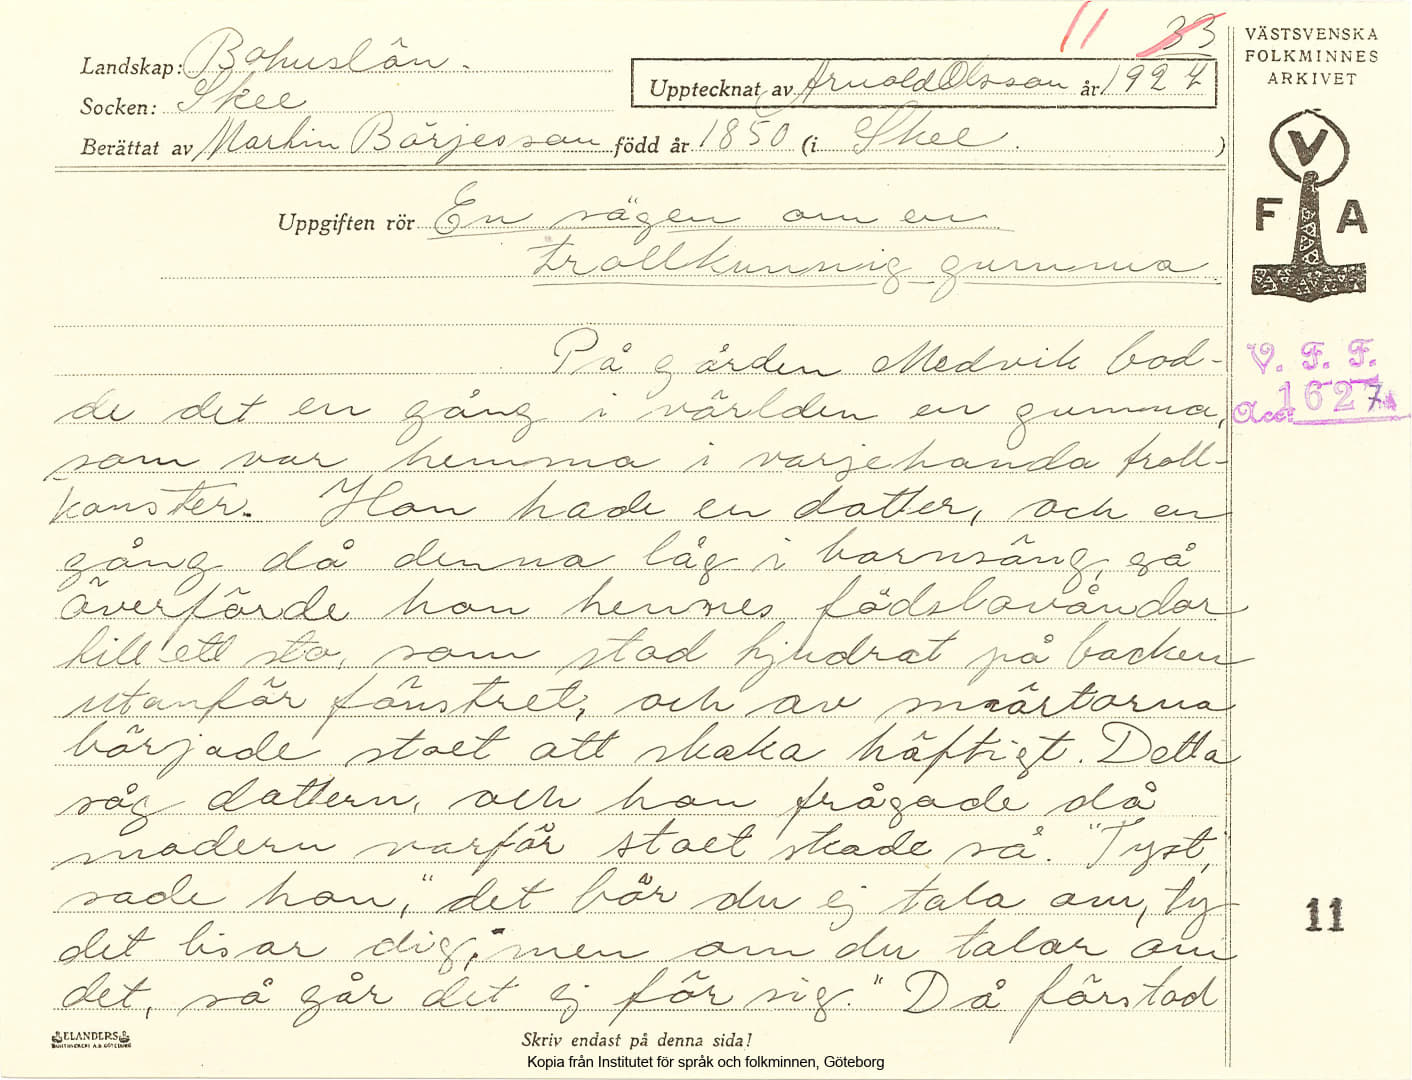 11 33
Landskap: Bohuslän.
Socken: Skee
Upptecknat av Arnold Olsson år 1927
Berättat av Martin Börjesson född år 1850 (i Skee.)
VÄSTSVENSKA
FOLKMINNES
ARKIVET
V
F A
Uppgiften rör En sägen om en
trollkunnig gumma
V. F. F.
Acc. 1627
På gården Medvik bod-
de det en gång i världen en gumma,
som var hemma i varjehanda troll-
konster. Hon hade en dotter, och en
gång då denna låg i barnsäng, så
överförde hon hennes födslovåndor
till ett sto, som stod tjudrat på backen
utanför fönstret, och av smärtorna
började stoet att skaka häftigt. Detta
såg dottern, och hon frågade då
modern varför stoet skade så. "Tyst,"
sade hon, "det bör du ej tala om, ty
det lisar dig, men om du talar om
det, så går det ej för sig." Då förstod
11
ELANDERS
Skriv endast på denna sida!
Kopia från Institutet för språk och folkminnen, Göteborg